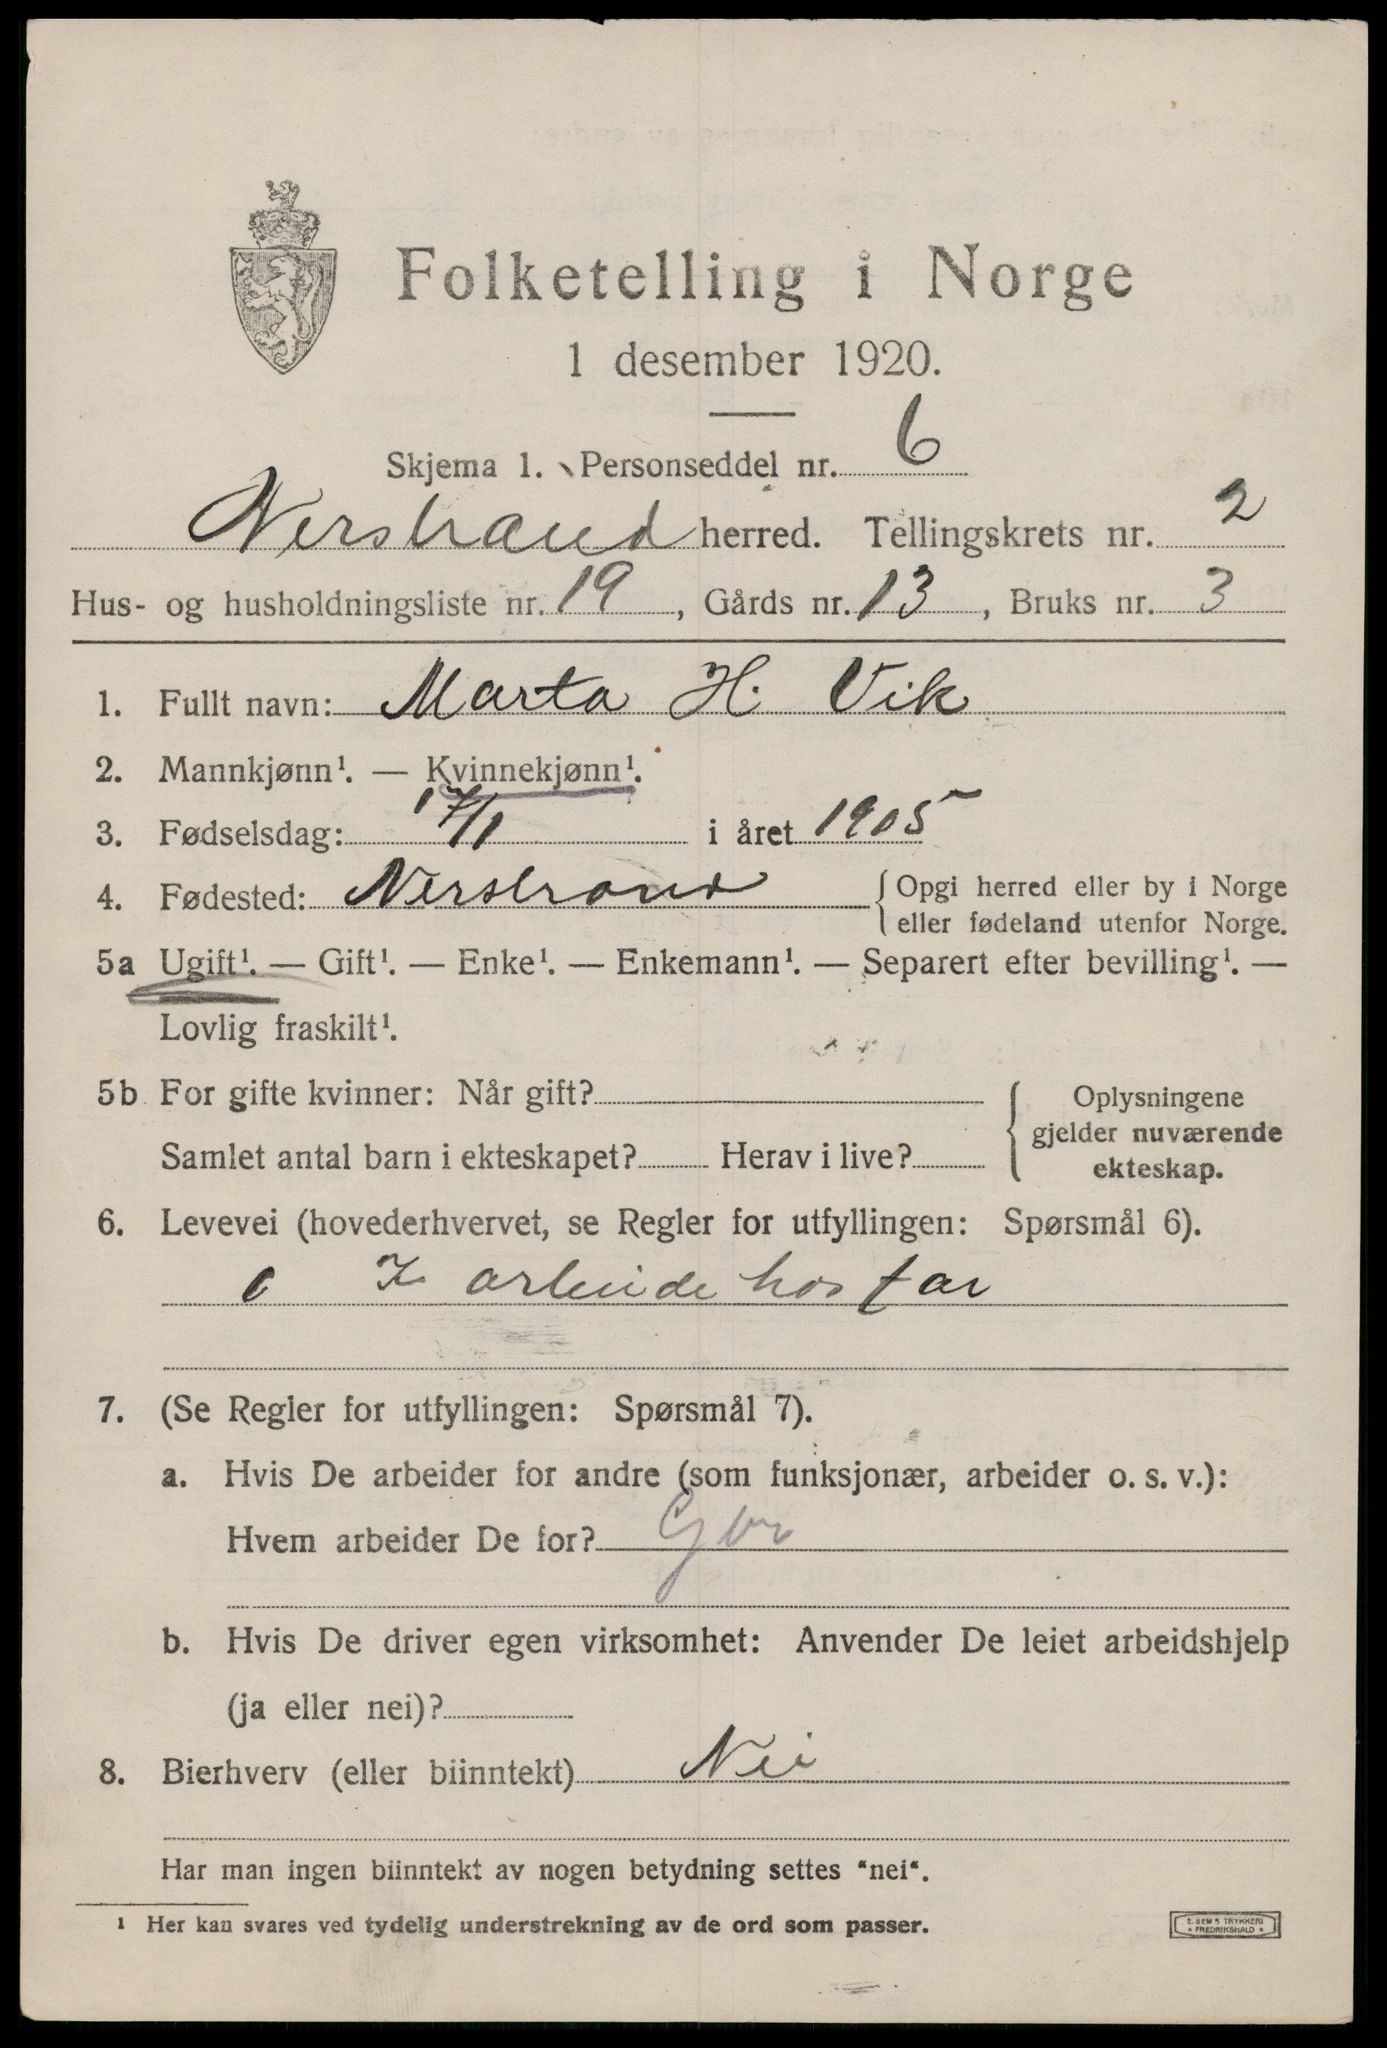 Folketelling i Norge
1 desember 1920.
Skjema 1. Personseddel nr. 6
Nerstrand herred. Tellingskrets nr. 2
Hus- og husholdningsliste nr. 19, Gårds nr. 13, Bruks nr. 3
1. Fullt navn: Marta H. Vik
2. Mannkjønn¹. — Kvinnekjønn¹.
3. Fødselsdag: 17/1 i året 1905
4. Fødested: Nerstrand { Opgi herred eller by i Norge
eller fødeland utenfor Norge.
5a Ugift¹. — Gift¹. — Enke¹. — Enkemann¹. — Separert efter bevilling¹. —
Lovlig fraskilt¹.
5b For gifte kvinner: Når gift?
Samlet antal barn i ekteskapet? Herav i live?
{ Oplysningene
gjelder nuværende
ekteskap.
6. Levevei (hovederhvervet, se Regler for utfyllingen: Spørsmål 6).
arbeide hos far
7. (Se Regler for utfyllingen: Spørsmål 7).
a. Hvis De arbeider for andre (som funksjonær, arbeider o. s. v.):
Hvem arbeider De for?
b. Hvis De driver egen virksomhet: Anvender De leiet arbeidshjelp
(ja eller nei)?
8. Bierhverv (eller biinntekt) Nei
Har man ingen biinntekt av nogen betydning settes "nei".
¹ Her kan svares ved tydelig understrekning av de ord som passer.
E. SEM'S TRYKKERI
FREDRIKSHALD